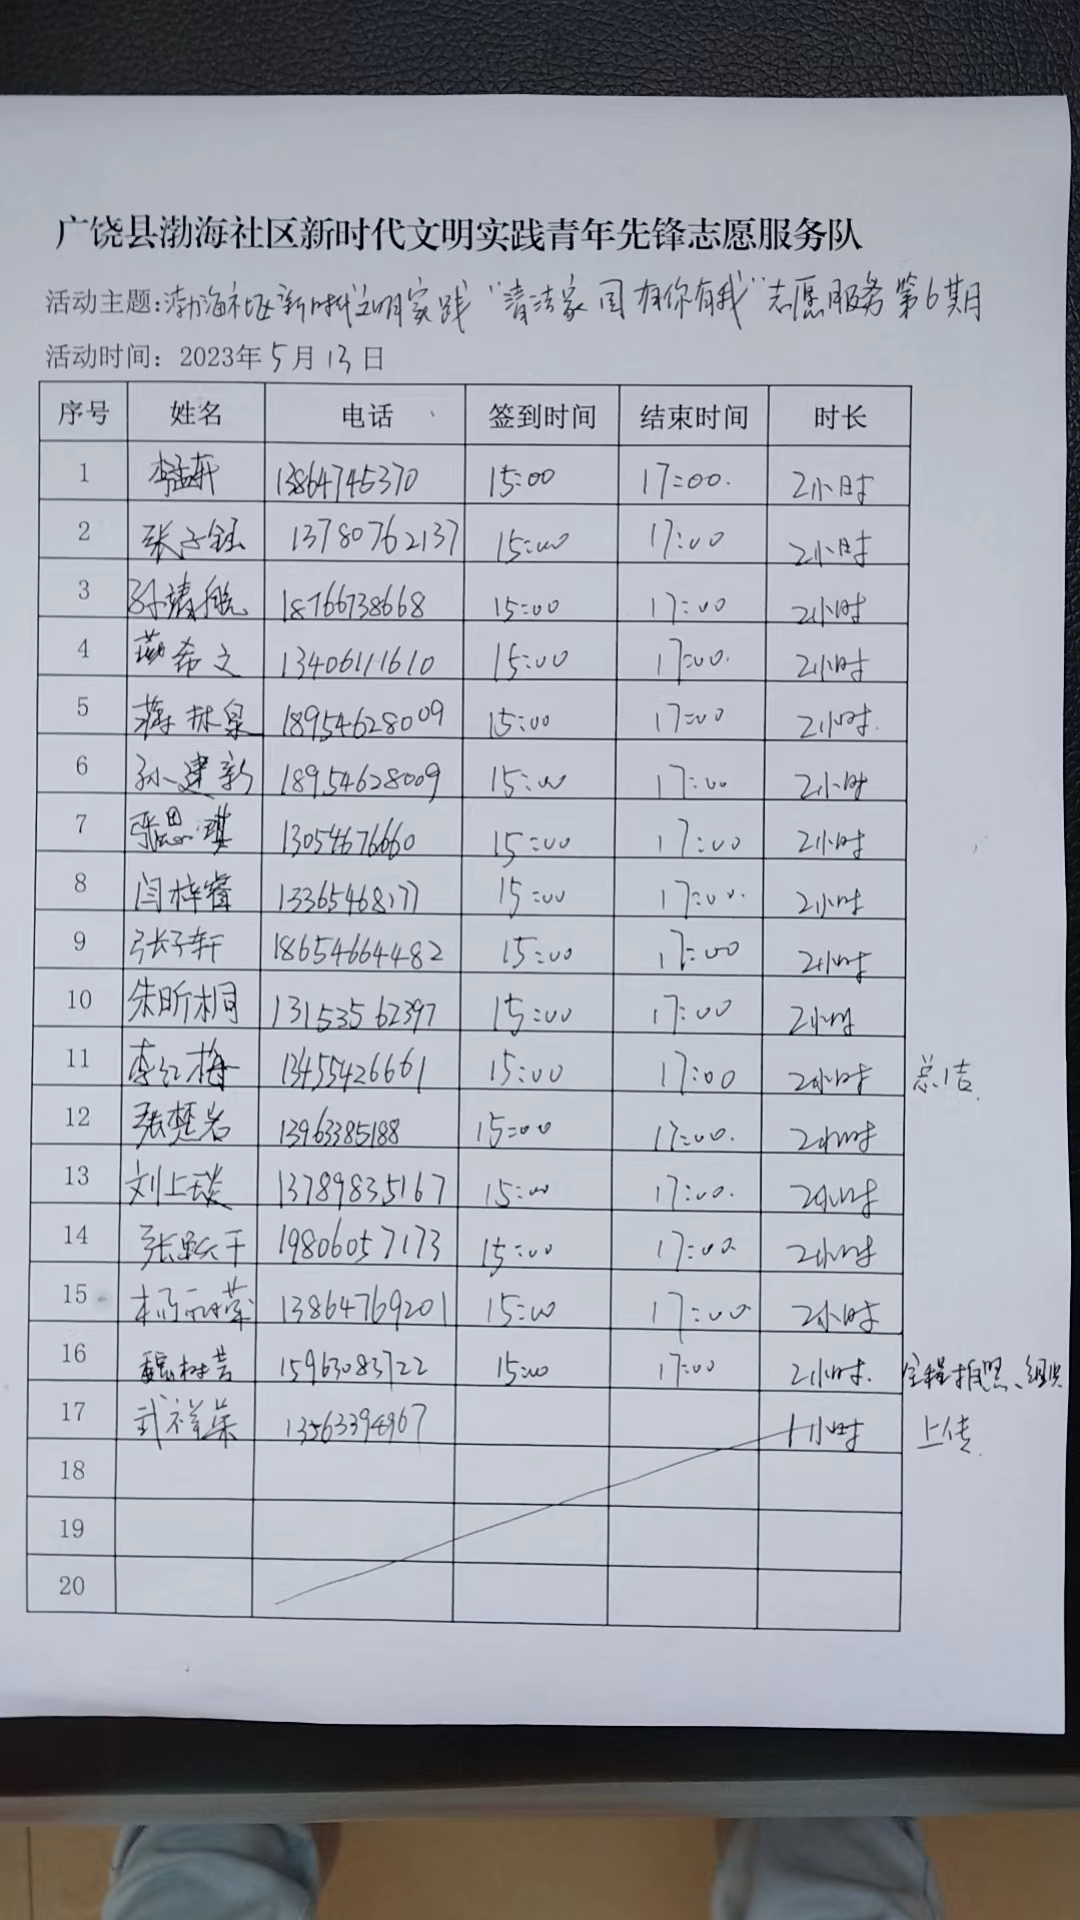 广饶县渤海社区新时代文明实践青年先锋志愿服务队
活动主题:渤海社区新时代文明实践“清洁家园有你有我”志愿服务第6期
活动时间：2023年5月13日
序号 姓名 电话 签到时间 结束时间 时长
1 李孟轩 13864745370 15:00 17:00. 2小时
2 张子钰 13780762137 15:00 17:00 2小时
3 孙靖航 18766738668 15:00 17:00 2小时
4 希文 13406111610 15:00 17:00. 2小时
5 蒋林泉 18954628009 15:00 17:00 2小时.
6 孙建新 18954628009 15:00 17:00 2小时
7 张恩琪 13054676660 15:00 17:00 2小时
8 闫梓睿 13365468177 15:00 17:00. 2小时
9 张子轩 18654664482 15:00 17:00 2小时
10 朱昕桐 13153562397 15:00 17:00 2小时
11 李红梅 13455426661 15:00 17:00 2小时 总结.
12 张楚岩 13963385188 15:00 17:00. 2小时
13 刘上琰 13789835167 15:00 17:00. 2小时
14 张 千 19806057173 15:00 17:00. 2小时
15 杨丽荣 13864769201 15:00 17:00 2小时
16 魏树芸 15963083722 15:00 17:00 2小时. 全程拍照、组织
17 武祥荣 13563394967 1小时 上传.
18
19
20